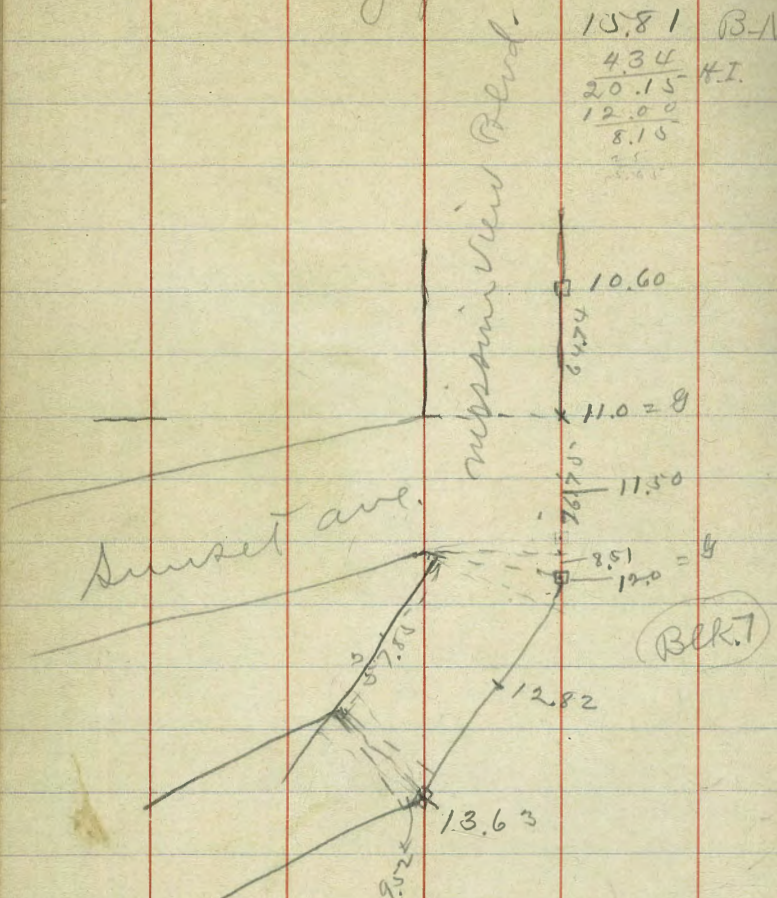 15.81 B-
4.34
20.15 H.I.
12.00
8.15
Mission View Blvd.
10.60
64.74
11.0 = g
96.75
11.50
Sunset ave.
8.51 = g
12.0
Blk.7
57.85
12.82
13.63
9.52